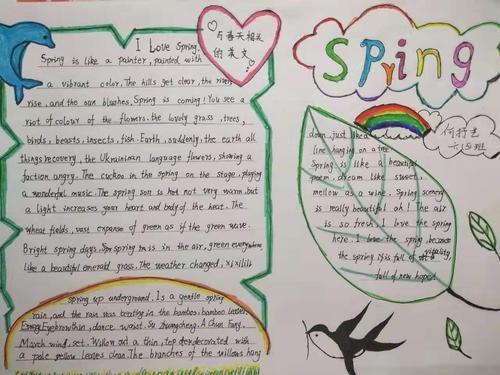 I Love Spring.
Spring is like a painter, painted with
a vibrant color. The hills get clear, the river
rise, and the sun blushes, Spring is coming! You see a
riot of colour of the flowers. the lovely grass, trees,
birds, beasts, insects, fish. Earth, suddenly, the earth all
things recovery, the Ukrainian language flowers, showing a
faction angry. The cuckoo in the spring on the stage, playing
a wonderful music. The spring son is hot not very warm, but
a light increases your heart and body of the heat. The
wheat fields, vast expanse of green as if the green wave.
Bright spring days. Spring is in the air, green everywhere
like a beautiful emerald grass. The weather changed, xixilili
spring up underground. Is a gentle spring
rain, and the rain was beating in the bamboo, bamboo leaves.
Eyebrowthin, dance waist. Su zhangcheng. A Chun Fang.
March wind, set. Willow out a thin, top der decorated with
a pale yellow leaves clean. The branches of the willows hang
与春天相关
的英文
Spring
何打毛
六四班
down, just like a
line hanging on a tree
Spring is like a beautiful
poem, dream like sweet,
mellow as a wine. Spring scenery
is really beautiful ah! The air
is so fresh. I love the spring
here. I love the spring, because
the spring is full of vitality,
full of new hope!